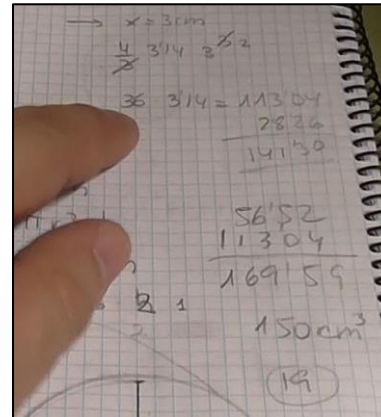 → x = 3cm
4/3 3'14 3
36 3'14 = 113'04
2826
141'30
56'52
11304
169'59
2 1
150cm³
19